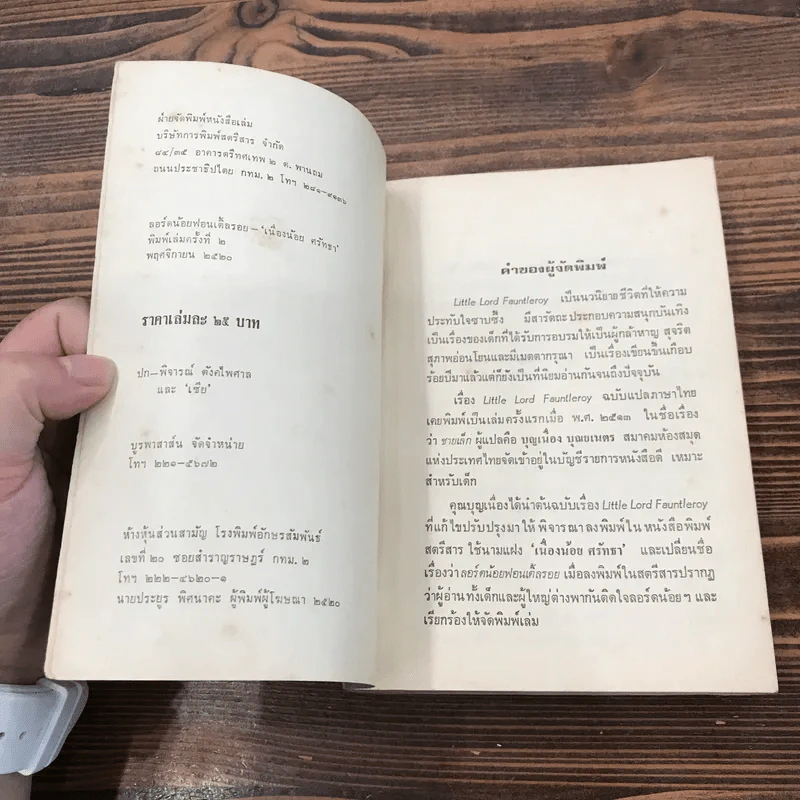 ฝ่ายจัดพิมพ์หนังสือเล่ม
บริษัทการพิมพ์สตรีสาร จำกัด
๘๔/๓๕ อาคารตรีทศเทพ ๒ ต. พานถม
ถนนประชาธิปไตย กทม. ๒ โทฯ ๒๘๑-๙๑๓๖
ลอร์ดน้อยฟอนเติ้ลรอย – 'เนื่องน้อย ศรัทธา'
พิมพ์เล่มครั้งที่ ๒
พฤศจิกายน ๒๕๒๐
ราคาเล่มละ ๒๕ บาท
ปก–พิจารณ์ ตังคไพศาล
และ 'เซีย'
บูรพาสาส์น จัดจำหน่าย
โทฯ ๒๒๑-๕๖๗๒
ห้างหุ้นส่วนสามัญ โรงพิมพ์อักษรสัมพันธ์
เลขที่ ๒๐ ซอยสำราญราษฎร์ กทม. ๒
โทฯ ๒๒๒-๔๖๒๐-๑
นายประยูร พิศนาคะ ผู้พิมพ์ผู้โฆษณา ๒๕๒๐
คำของผู้จัดพิมพ์
Little Lord Fauntleroy เป็นนวนิยายชีวิตที่ให้ความ
ประทับใจซาบซึ้ง มีสารัตถะประกอบความสนุกบันเทิง
เป็นเรื่องของเด็กที่ได้รับการอบรมให้เป็นผู้กล้าหาญ สุจริต
สุภาพอ่อนโยนและมีเมตตากรุณา เป็นเรื่องเขียนขึ้นเกือบ
ร้อยปีมาแล้วแต่ก็ยังเป็นที่นิยมอ่านกันจนถึงปัจจุบัน
เรื่อง Little Lord Fauntleroy ฉบับแปลภาษาไทย
เคยพิมพ์เป็นเล่มครั้งแรกเมื่อ พ.ศ. ๒๕๑๓ ในชื่อเรื่อง
ว่า ชายเล็ก ผู้แปลคือ บุญเนื่อง บุณยเนตร สมาคมห้องสมุด
แห่งประเทศไทยจัดเข้าอยู่ในบัญชีรายการหนังสือดี เหมาะ
สำหรับเด็ก
คุณบุญเนื่องได้นำต้นฉบับเรื่อง Little Lord Fauntleroy
ที่แก้ไขปรับปรุงมาให้ พิจารณาลงพิมพ์ใน หนังสือพิมพ์
สตรีสาร ใช้นามแฝง 'เนื่องน้อย ศรัทธา' และเปลี่ยนชื่อ
เรื่องว่า ลอร์ดน้อยฟอนเติ้ลรอย เมื่อลงพิมพ์ในสตรีสารปรากฏ
ว่าผู้อ่าน ทั้งเด็กและผู้ใหญ่ ต่างพากันติดใจลอร์ดน้อยฯ และ
เรียกร้องให้จัดพิมพ์เล่ม